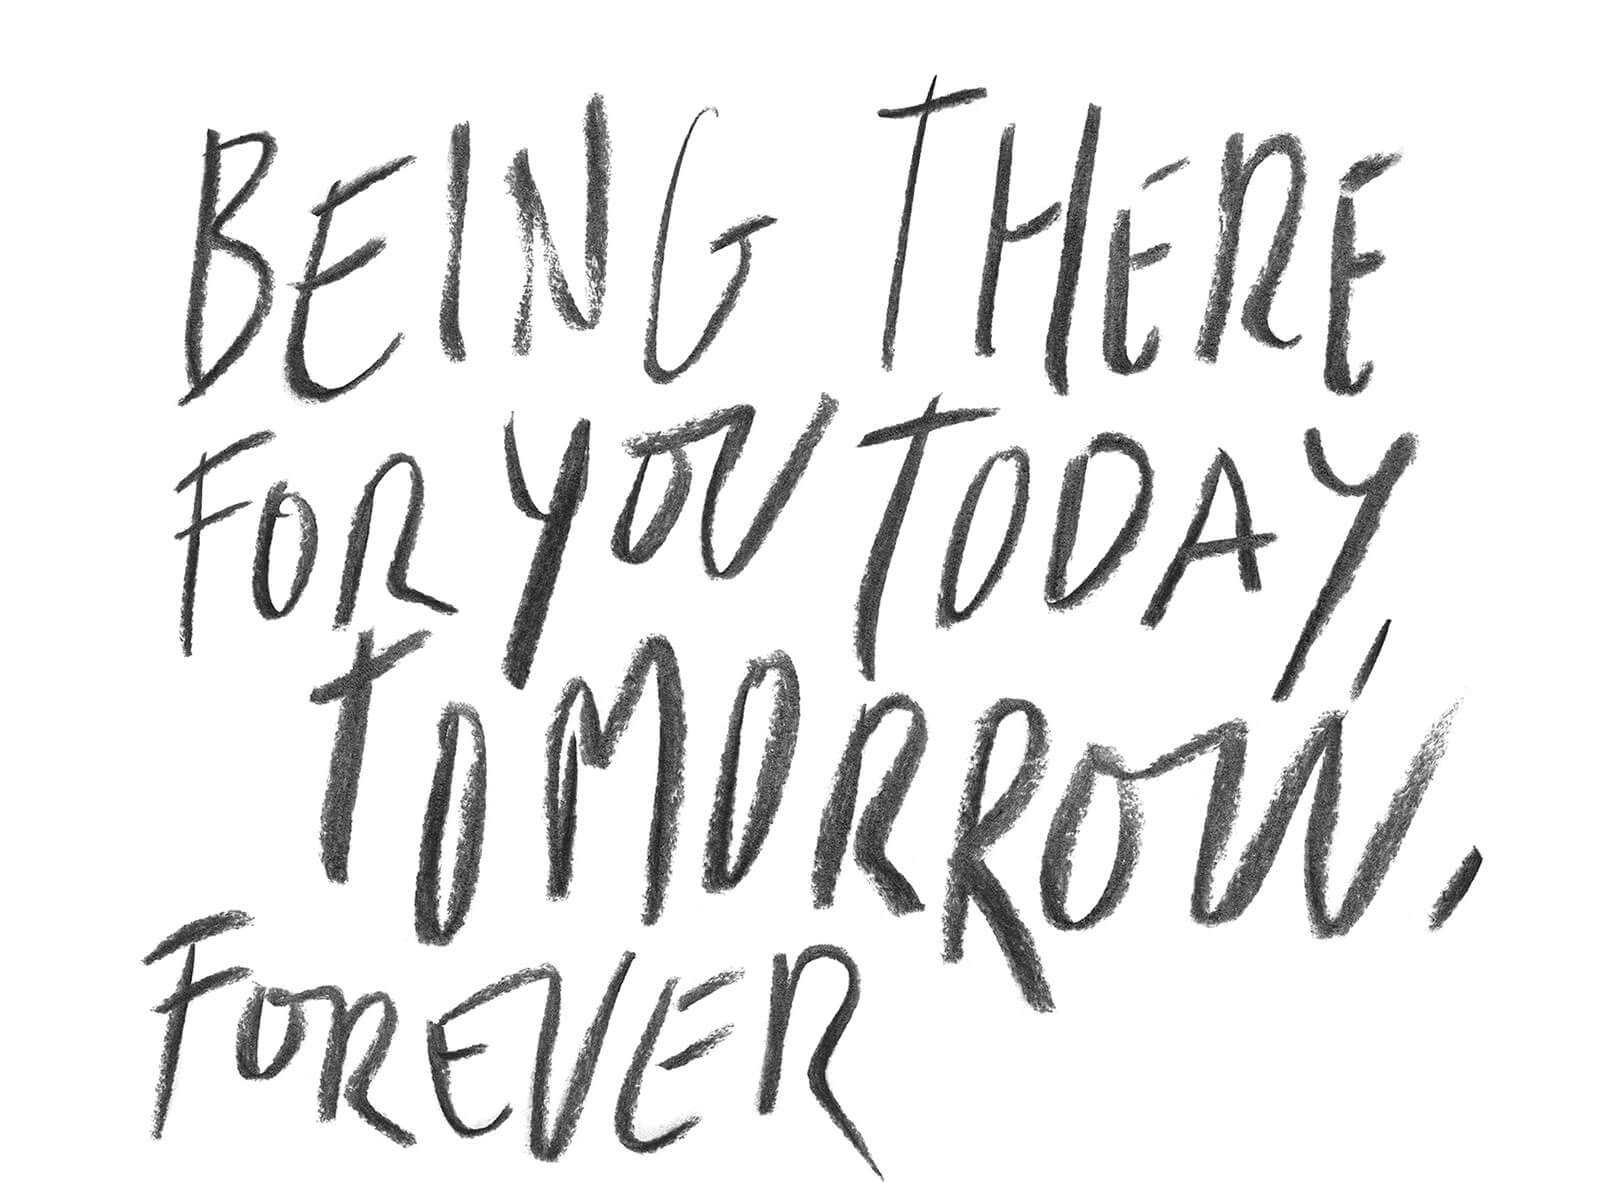 BEING THERE
FOR YOU TODAY,
TOMORROW,
FOREVER